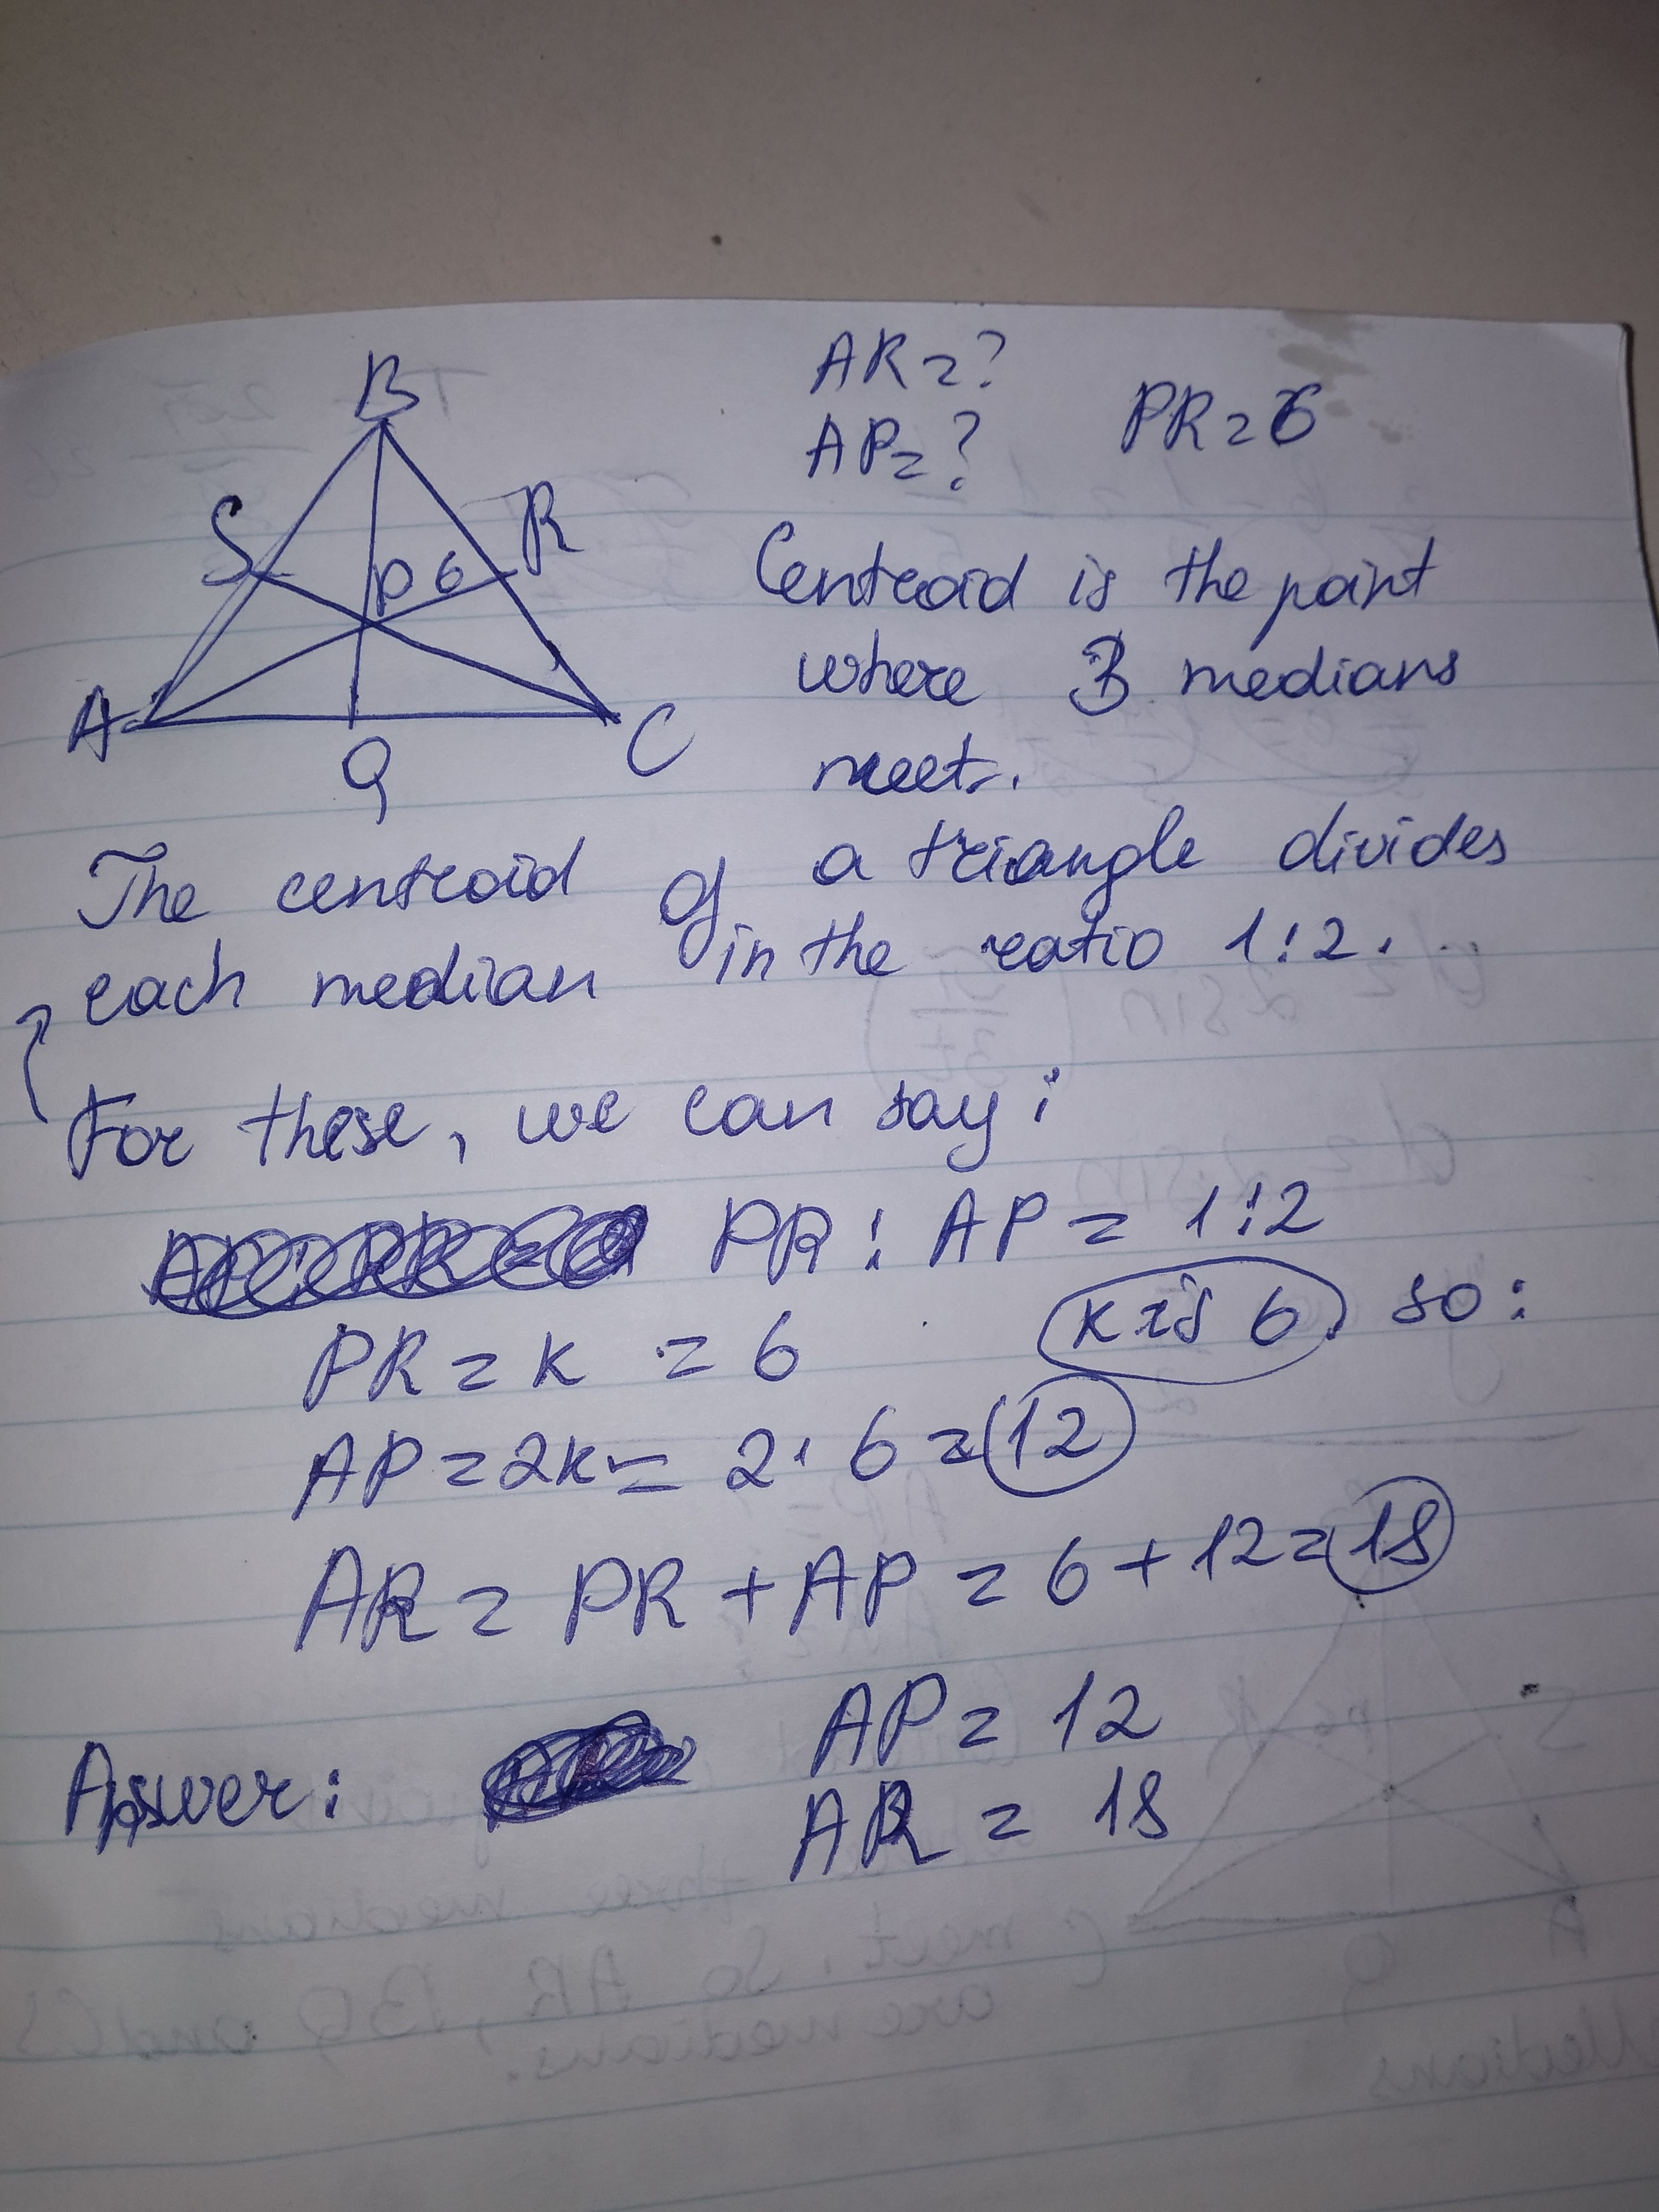 B
S
R
P 6
A
C
Q
AR = ?
AP = ?
PR = 6
Centroid is the point
where 3 medians
meet.
The centroid of a triangle divides
each median in the ratio 1:2.
For these, we can say:
PR : AP = 1:2
PR = k = 6
k is 6, so:
AP = 2k = 2 · 6 = 12
AR = PR + AP = 6 + 12 = 18
Answer: AP = 12
AR = 18